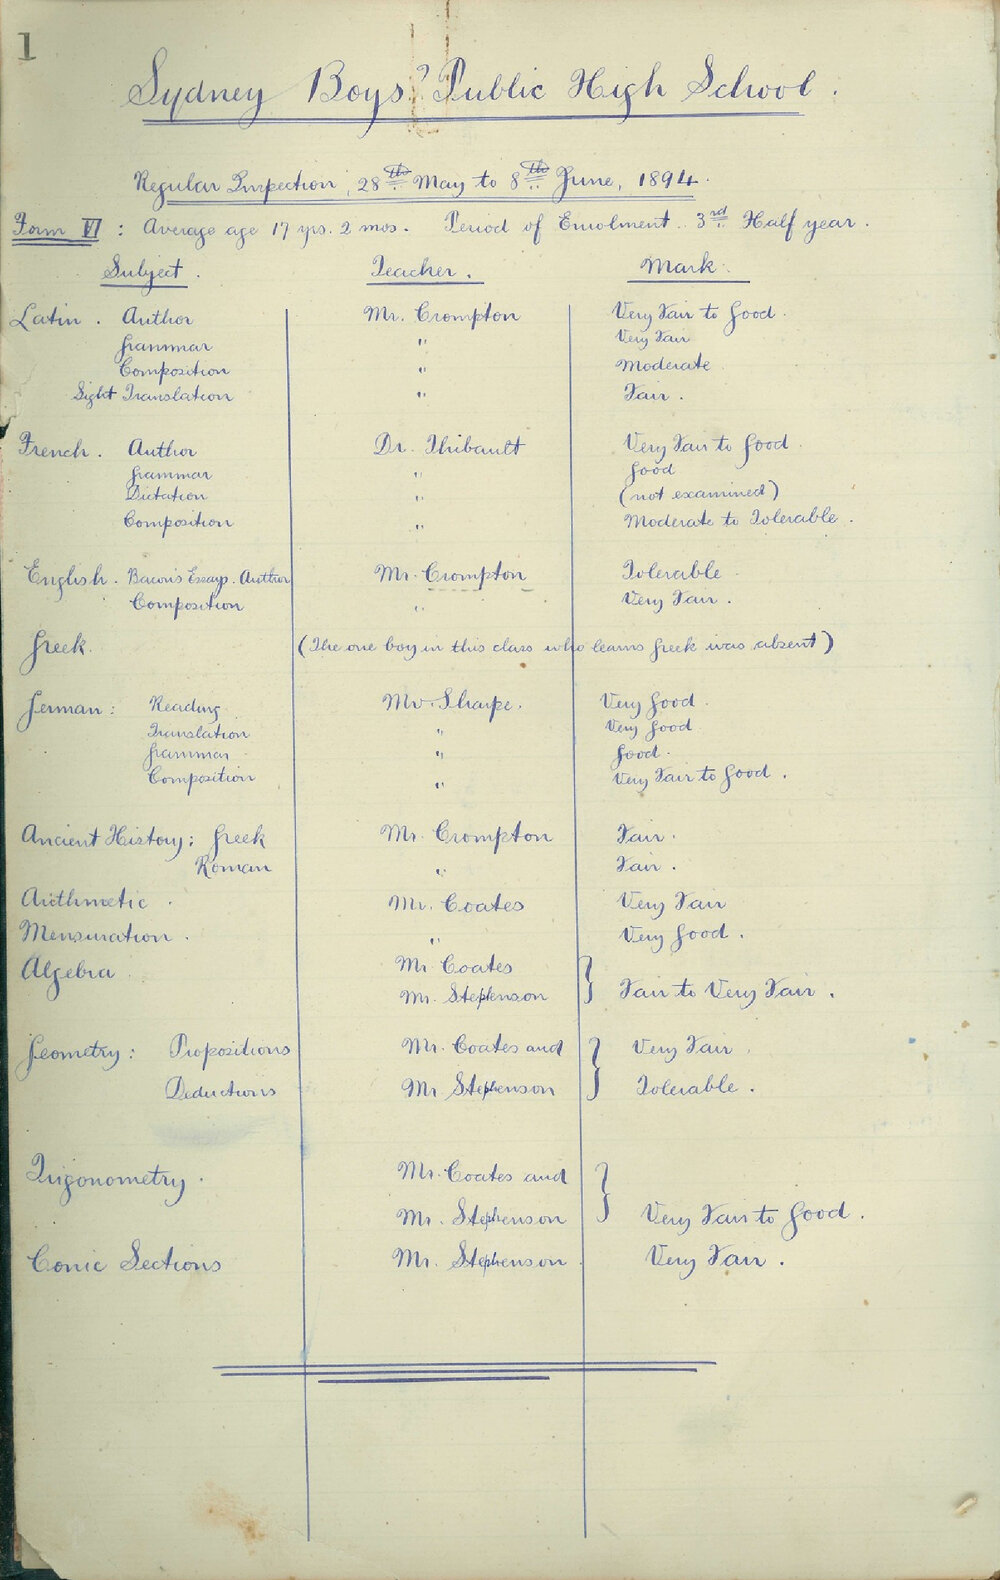 1
Sydney Boys' Public High School.
Regular Inspection, 28th May to 8th June, 1894.
Form VI : Average age 17 yrs. 2 mos. Period of Enrolment. 3rd Half year.
Subject. Teacher. Mark.
Latin. Author Mr. Crompton Very Fair to Good.
Grammar " Very Fair
Composition " Moderate
Sight Translation " Fair.
French. Author Dr. Thibault Very Fair to Good.
Grammar " Good
Dictation " (not examined)
Composition " Moderate to Tolerable.
English. Bacon's Essays. Author Mr. Crompton Tolerable
Composition " Very Fair.
Greek. (The one boy in this class who learns Greek was absent)
German: Reading Mr. Sharpe. Very Good.
Translation " Very Good
Grammar " Good.
Composition " Very Fair to Good.
Ancient History: Greek Mr. Crompton Fair.
Roman " Fair.
Arithmetic. Mr. Coates Very Fair
Mensuration. " Very Good.
Algebra. Mr Coates
Mr. Stephenson } Fair to Very Fair.
Geometry: Propositions Mr. Coates and } Very Fair.
Deductions Mr. Stephenson Tolerable.
Trigonometry. Mr. Coates and }
Mr. Stephenson Very Fair to Good.
Conic Sections Mr. Stephenson. Very Fair.